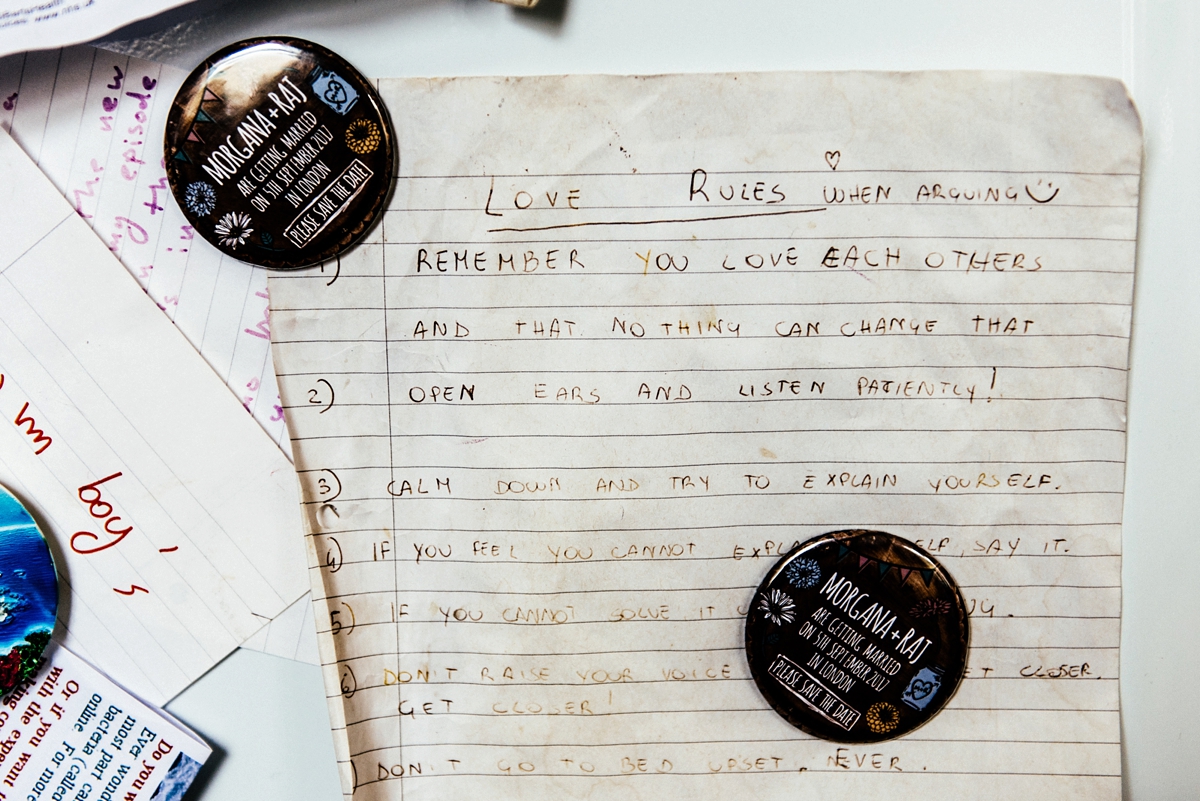 MORGANA+RAJ
ARE GETTING MARRIED
ON 5TH SEPTEMBER 2017
IN LONDON
PLEASE SAVE THE DATE
LOVE RULES WHEN ARGUING
1) REMEMBER YOU LOVE EACH OTHERS
AND THAT NOTHING CAN CHANGE THAT
2) OPEN EARS AND LISTEN PATIENTLY!
3) CALM DOWN AND TRY TO EXPLAIN YOURSELF.
4) IF YOU FEEL YOU CANNOT SAY IT.
5) IF YOU CANNOT SOLVE IT
6) DON'T RAISE YOUR VOICE CLOSER.
GET CLOSER!
) DON'T GO TO BED UPSET. NEVER.
MORGANA+RAJ
ARE GETTING MARRIED
ON 5TH SEPTEMBER 2017
IN LONDON
PLEASE SAVE THE DATE
the new
my episode
in
m
boy
Do you w
Ever wond
most part
bacteria (called
online For more
Or if you want
with the expe